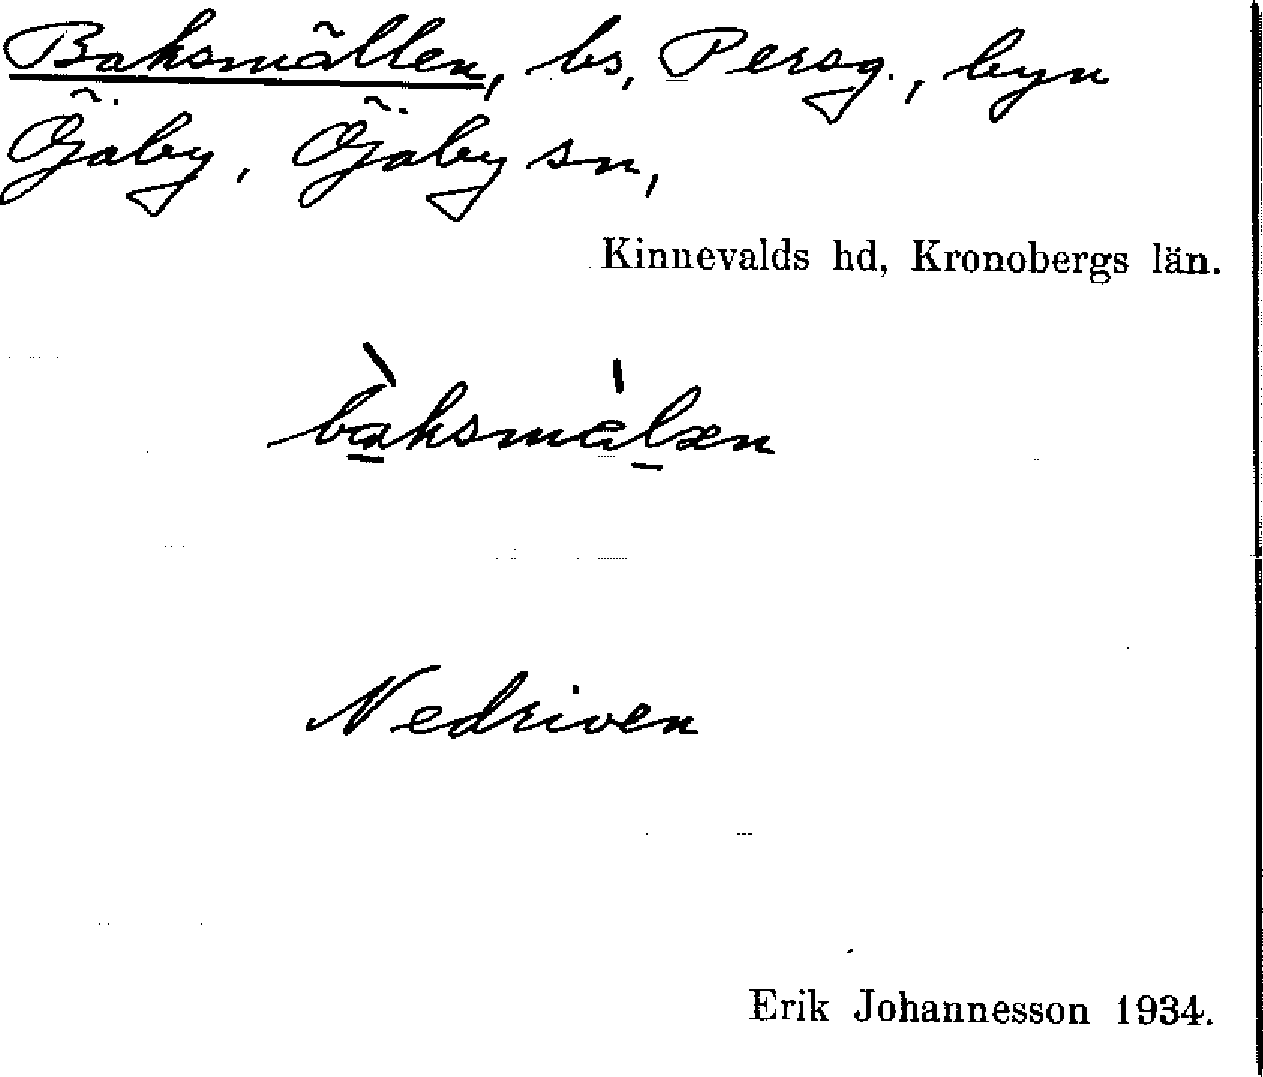 Baksmällen, bs, Persg., byn
Öjaby, Öjaby sn,
Kinnevalds hd, Kronobergs län.
bàksmälæn
Nedriven
Erik Johannesson 1934.